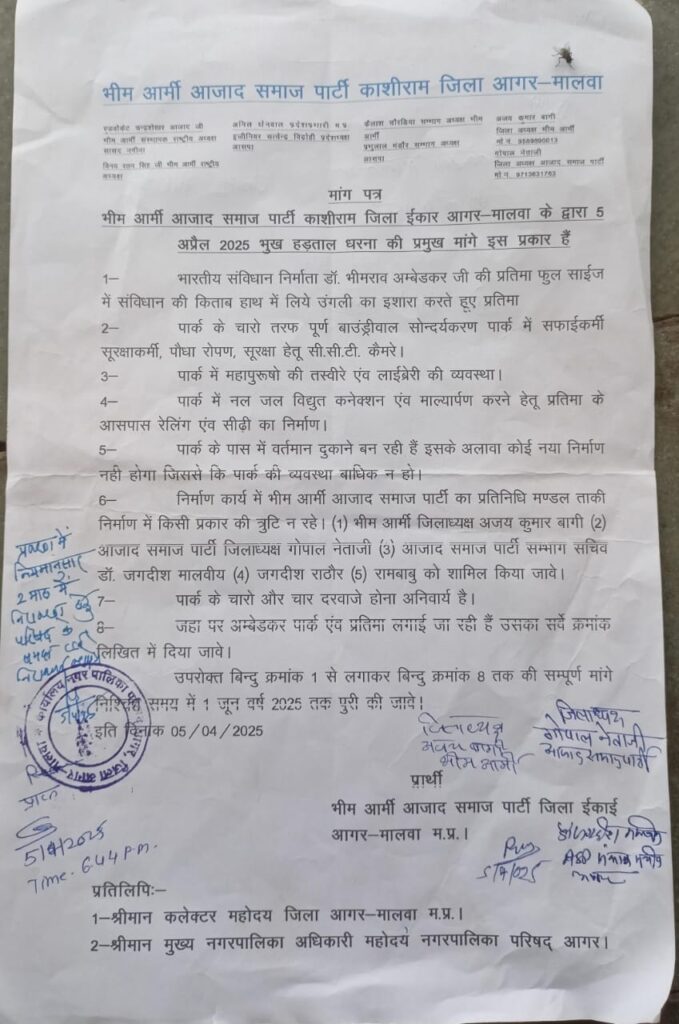 भीम आर्मी आजाद समाज पार्टी काशीराम जिला आगर–मालवा
एडवोकेट चन्द्रशेखर आजाद जी
भीम आर्मी संस्थापक राष्ट्रीय अध्यक्ष
सासद नगीना
विनय रतन सिंह जी भीम आर्मी राष्ट्रीय
अध्यक्ष
अनिल धेनवाल प्रदेशप्रभारी म.प्र.
इंजीनियर सत्येन्द्र विद्रोही प्रदेशध्यक्ष
आसपा
कैलाश चौरडिया सम्भाग अध्यक्ष भीम
आर्मी
प्रभुलाल मंडोर सम्भाग अध्यक्ष
आसपा
अजय कुमार बागी
जिला अध्यक्ष भीम आर्मी
गोपाल नेताजी
जिला अध्यक्ष आजाद समाज पार्टी
मो नं. 9713631763
मांग पत्र
भीम आर्मी आजाद समाज पार्टी काशीराम जिला ईकार आगर–मालवा के द्वारा 5
अप्रैल 2025 भुख हड़ताल धरना की प्रमुख मांगे इस प्रकार हैं
1– भारतीय संविधान निर्माता डॉ. भीमराव अम्बेडकर जी की प्रतिमा फुल साईज
में संविधान की किताब हाथ में लिये उंगली का इशारा करते हूए प्रतिमा
2– पार्क के चारो तरफ पूर्ण बाउंड्रीवाल सोन्दर्यकरण पार्क में सफाईकर्मी
सूरक्षाकर्मी, पौधा रोपण, सुरक्षा हेतू सी.सी.टी. कैमरे।
3– पार्क में महापुरूषो की तस्वीरे एंव लाईब्रेरी की व्यवस्था।
4– पार्क में नल जल विद्युत कनेक्शन एंव माल्यार्पण करने हेतू प्रतिमा के
आसपास रेलिंग एंव सीढ़ी का निर्माण।
5– पार्क के पास में वर्तमान दुकाने बन रही हैं इसके अलावा कोई नया निर्माण
नही होगा जिससे कि पार्क की व्यवस्था बाधिक न हो।
6– निर्माण कार्य में भीम आर्मी आजाद समाज पार्टी का प्रतिनिधि मण्डल ताकी
निर्माण में किसी प्रकार की त्रुटि न रहे। (1) भीम आर्मी जिलाध्यक्ष अजय कुमार बागी (2)
आजाद समाज पार्टी जिलाध्यक्ष गोपाल नेताजी (3) आजाद समाज पार्टी सम्भाग सचिव
डॉ. जगदीश मालवीय (4) जगदीश राठौर (5) रामबाबु को शामिल किया जावे।
7– पार्क के चारो और चार दरवाजे होना अनिवार्य है।
8– जहा पर अम्बेडकर पार्क एंव प्रतिमा लगाई जा रही हैं उसका सर्वे क्रमांक
लिखित में दिया जावे।
उपरोक्त बिन्दु क्रमांक 1 से लगाकर बिन्दु क्रमांक 8 तक की सम्पूर्ण मांगे
निश्चित समय में 1 जून वर्ष 2025 तक पुरी की जावे।
इति दिनांक 05/04/2025
प्रकरण में
नियमानुसार
2 माह में
परिषद के
समक्ष
कार्यालय नगर पालिका परिषद आगर, जिला आगर-मालवा
5/4/2025
Time. 6:44 P.m.
जिलाध्यक्ष
अजय बागी
भीम आर्मी
जिलाध्यक्ष
गोपाल नेताजी
आजाद समाज पार्टी
प्रार्थी
भीम आर्मी आजाद समाज पार्टी जिला ईकाई
आगर–मालवा म.प्र.।
5/4/025
प्रतिलिपिः–
1–श्रीमान कलेक्टर महोदय जिला आगर–मालवा म.प्र.।
2–श्रीमान मुख्य नगरपालिका अधिकारी महोदय नगरपालिका परिषद् आगर।